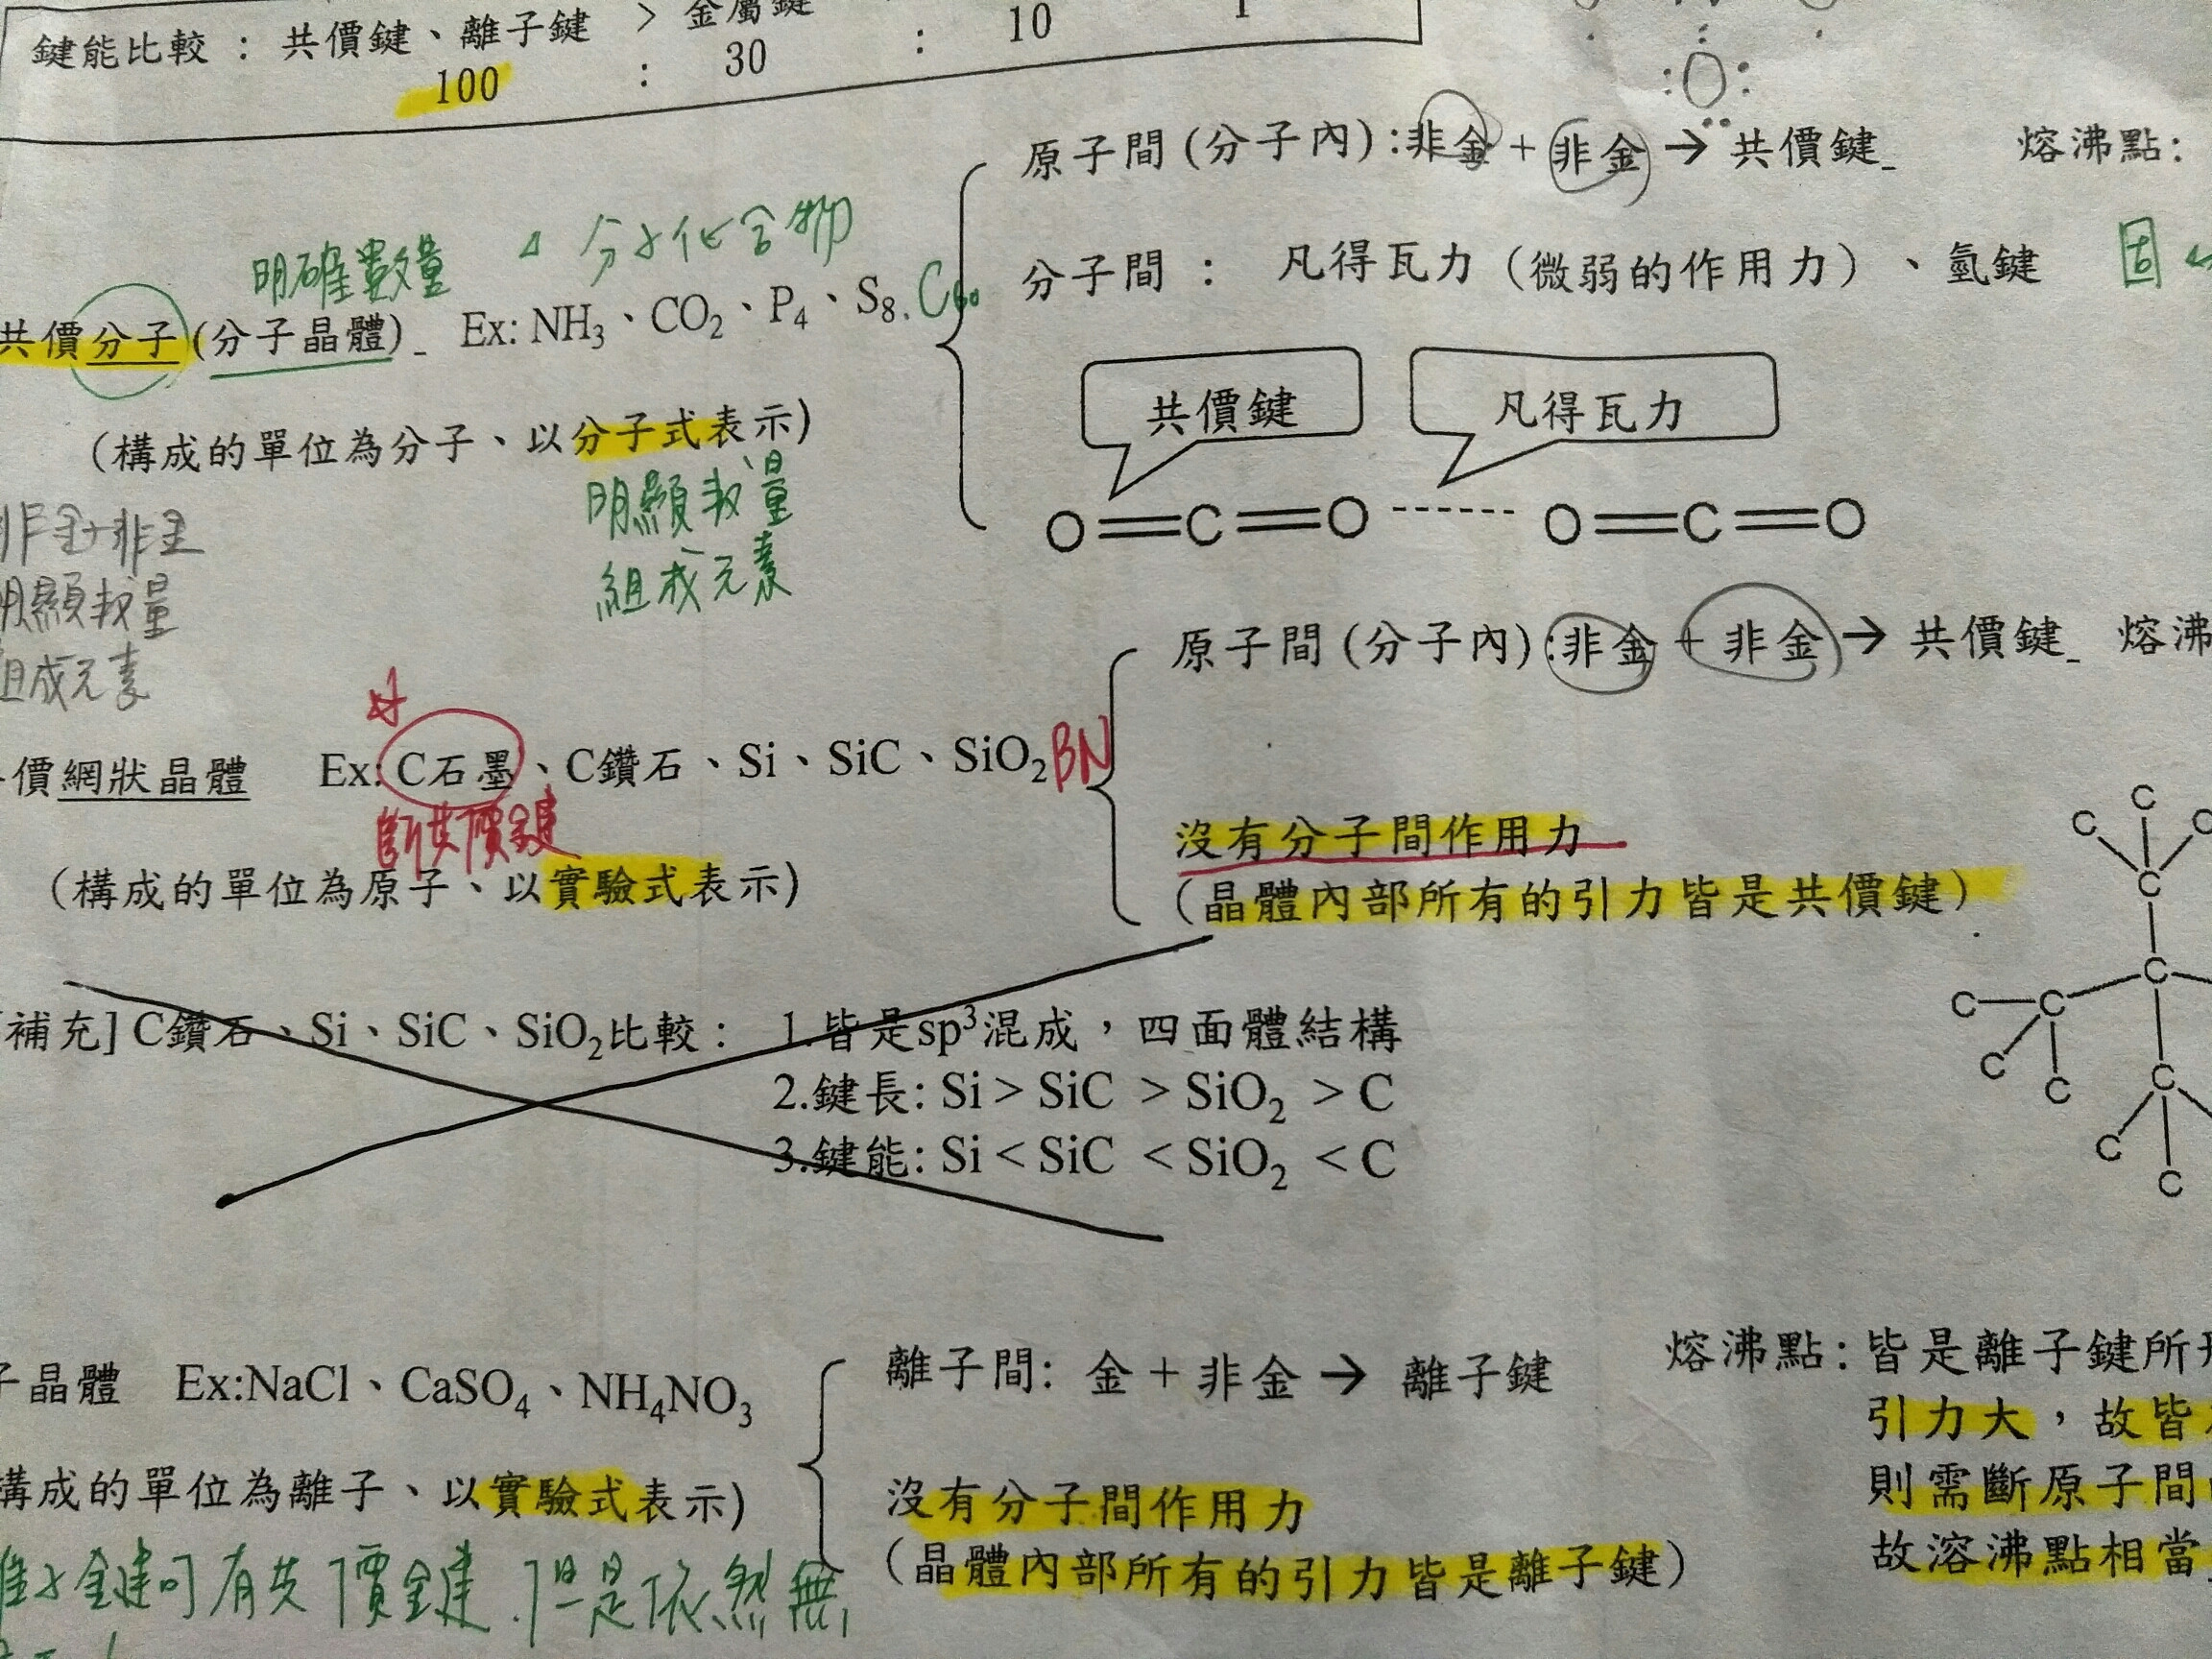 鍵能比較 : 共價鍵、離子鍵 > 金屬鍵
100 : 30 : 10 1
原子間(分子內):非金+非金→共價鍵
熔沸點:
明確數量 △ 分子化合物
分子間 : 凡得瓦力(微弱的作用力)、氫鍵
固
共價分子(分子晶體) Ex: NH₃、CO₂、P₄、S₈. C₆₀
(構成的單位為分子、以分子式表示)
明顯数量
組成元素
共價鍵
凡得瓦力
O=C=O ------ O=C=O
非金+非金
明顯数量
組成元素
原子間(分子內):非金+非金→共價鍵
熔沸
價網狀晶體 Ex: C石墨、C鑽石、Si、SiC、SiO₂ BN
斷共價鍵
(構成的單位為原子、以實驗式表示)
沒有分子間作用力
(晶體內部所有的引力皆是共價鍵)
C
C
C
C
C
C
C
C
C
C
C
補充] C鑽石、Si、SiC、SiO₂比較: 1.皆是sp³混成,四面體結構
2.鍵長: Si > SiC > SiO₂ > C
3.鍵能: Si < SiC < SiO₂ < C
子晶體 Ex:NaCl、CaSO₄、NH₄NO₃
構成的單位為離子、以實驗式表示)
離子間: 金+非金→ 離子鍵
沒有分子間作用力
(晶體內部所有的引力皆是離子鍵)
熔沸點: 皆是離子鍵所
引力大,故皆
則需斷原子間
故溶沸點相當
離子鍵可有共價鍵.但是依然無